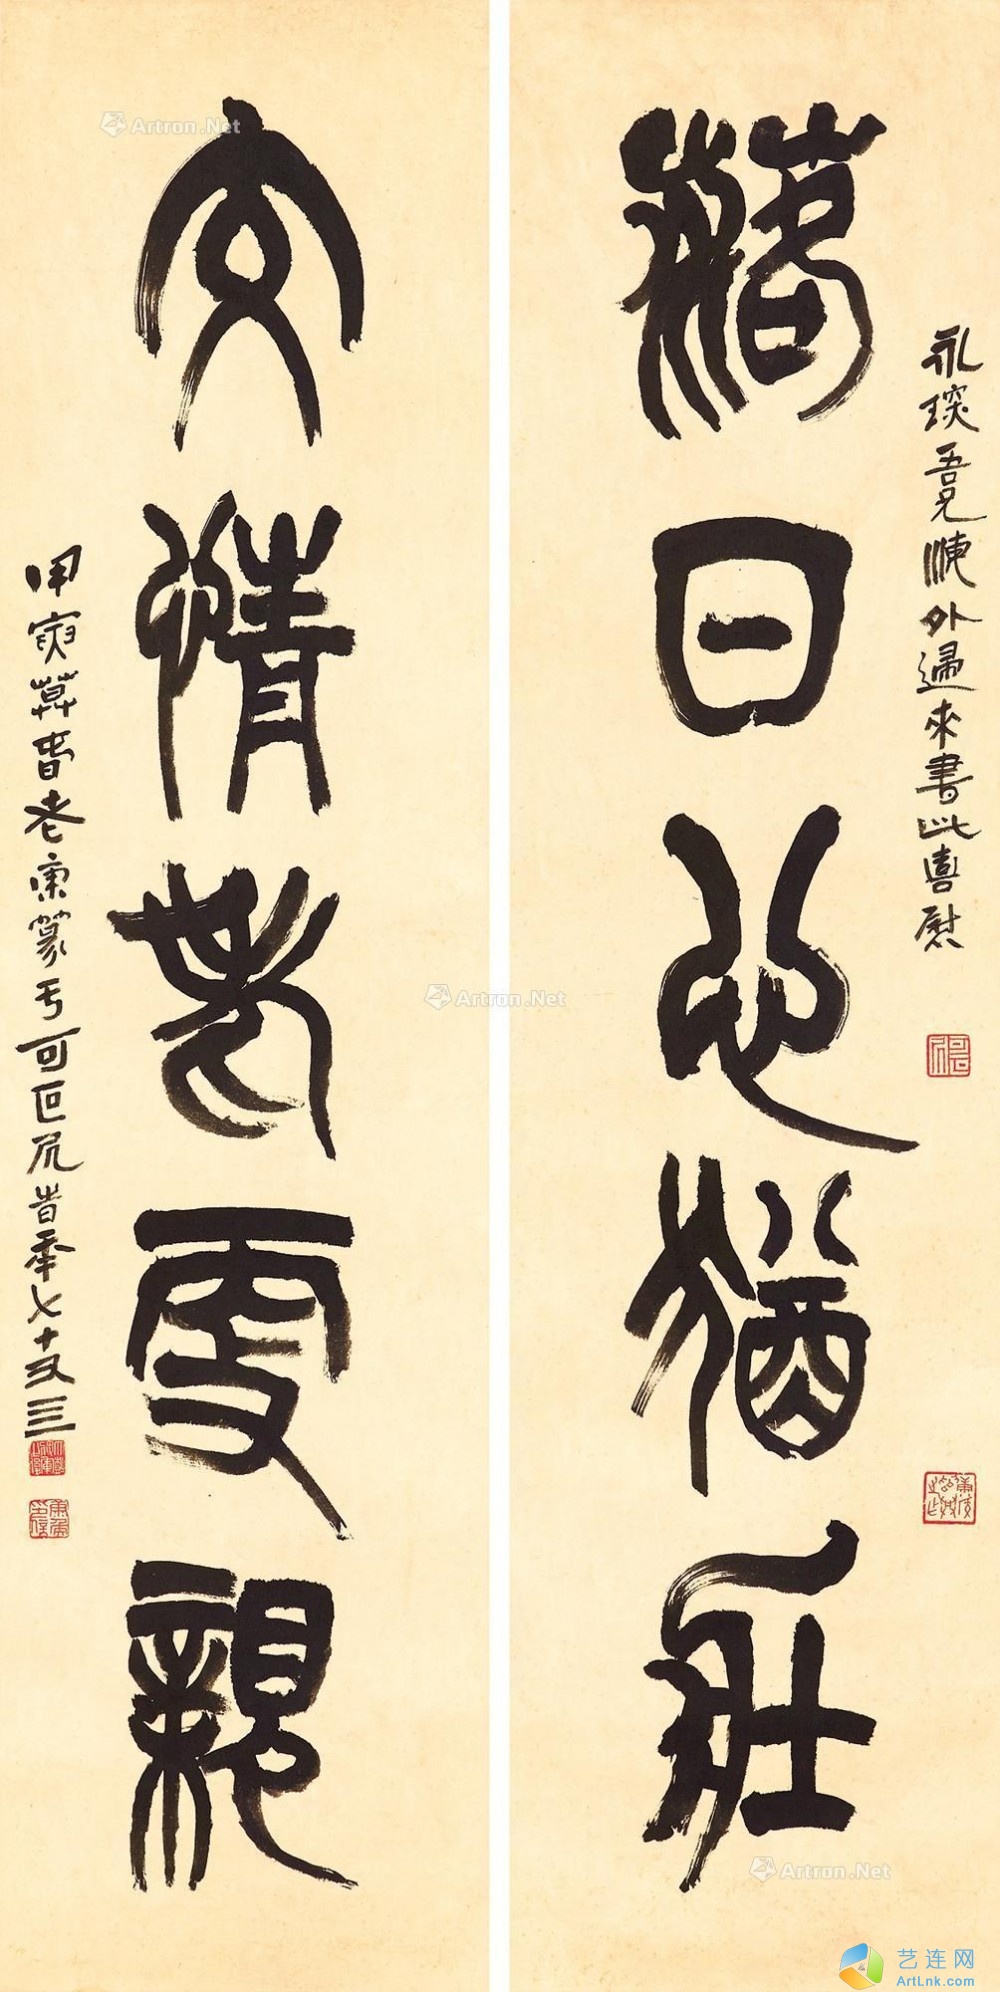 落日心猶壯
永琛吾兄海外歸來書此喜慰
交情老更親
甲寅莫春老康篆于可叵凥旹年七十又三
Artron.Net
Artron.Net
Artron.Net
艺连网
ArtLnk.com